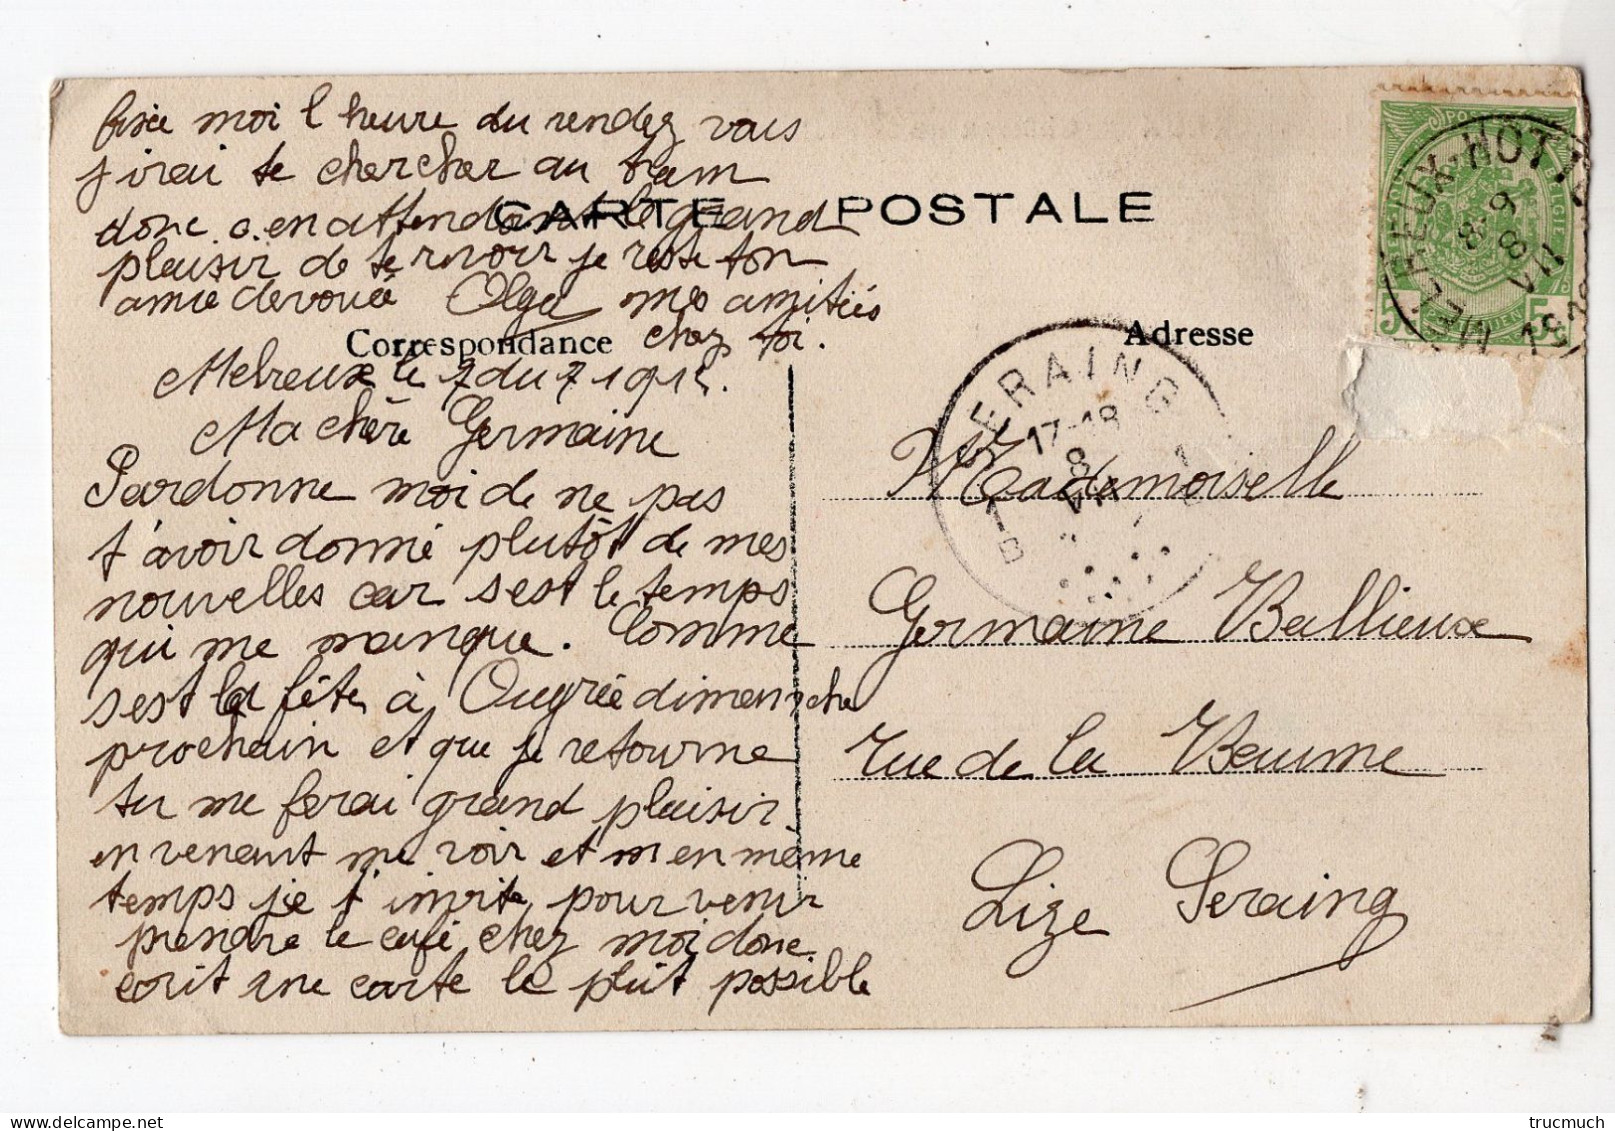 fixe moi l heure du rendez vous
j irai te chercher au tram
donc . a . en attendant le grand
plaisir de te revoir je reste ton
amie devouée Olga mes amitiés
chez toi.
CARTE POSTALE
Correspondance
Melreux le 7 du 7 1912.
Ma chère Germaine
Pardonne moi de ne pas
t'avoir donné plutôt de mes
nouvelles car s est le temps
qui me manque. Comme
s est la fête à Ougrée dimanche
prochain et que je retourne
tu me ferai grand plaisir
en venant me voir et m en même
temps je t' invite pour venir
prendre le café chez moi donc
ecrit une carte le plut possible
Adresse
Mademoiselle
Germaine Ballieux
rue de la Baume
Lize Seraing
SERAING
17-18
8
VII
1
B
MELREUX-HOTT
8
VII
BELGIE
5 5
trucmuch www.delcampe.net